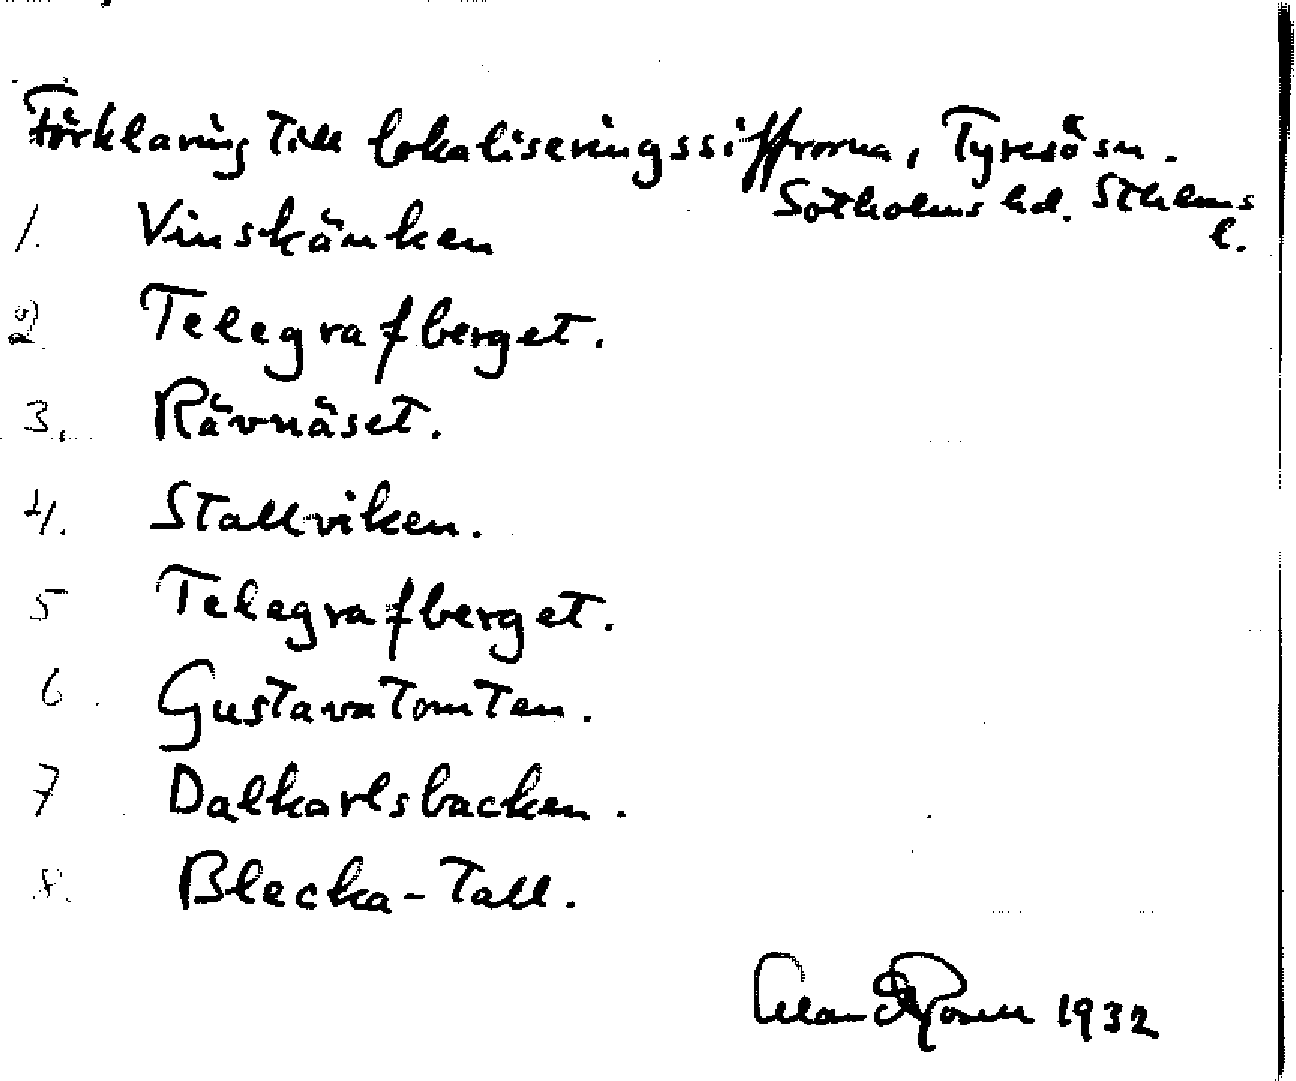 Förklaring till lokaliseringssiffrorna, Tyresö sn.
Sotholms hd. Sthlms
l.
1. Vinskänken
2 Telegrafberget.
3. Rävnäset.
4. Stallviken.
5 Telegrafberget.
6. Gustavatomten.
7 Dalkarlsbacken.
8. Blecka-Tall.
1932